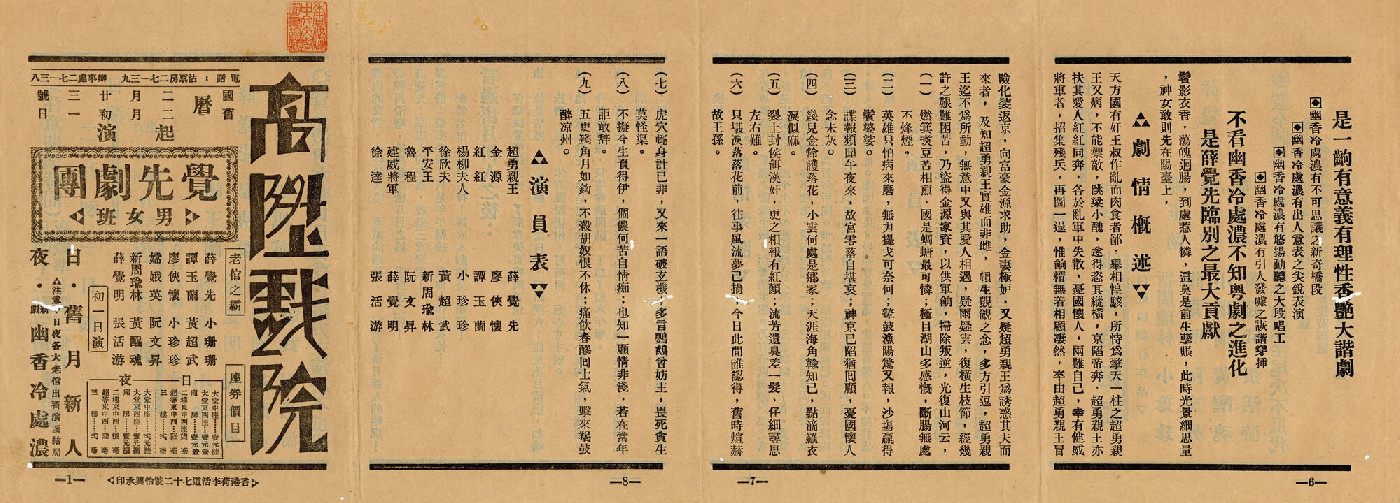 是一齣有意義有理性香艷大諧劇
幽香冷處濃有不可思議之新奇橋段
幽香冷處濃有出人意表之尖銳表演
幽香冷處濃有悠揚動聽之大段唱工
幽香冷處濃有引人發噱之詼諧穿揷
不看幽香冷處濃不知粤劇之進化
是薛覺先臨別之最大貢獻
鬢影衣香，蕩魄迴腸，到處惹人憐，還莫是前生孽賬，此時光景細思量
，神女敢則先在陽臺上，
劇情概述
天方國有奸王叔作亂而肉食者鄙，舉相惶駭，所恃爲擎天一柱之超勇親
王又病，不能禦敵，跳梁小醜，遂得恣其縱橫，京陷帝奔，超勇親王亦
扶其愛人紅紅同奔，各於亂軍中失散，憂國懷人，兩難自已，幸有健威
將軍者，招集殘兵，再圖一逞，惟餉糈無著相顧凄然，率由超勇親王冒
—6—
險化裝返京，向富豪金源求助，金妻極妒，又疑超勇親王爲誘惑其夫而
來者，及知超勇親王實雄而非雌，頓生覬覦之念，多方引逗，超勇親
王迄不爲所動，無意中又與其愛人相遇，疑雨疑雲，復橫生枝節，經幾
許之艱難困苦，乃盜得金源家資，以供軍餉，掃除叛逆，光復山河云，
（一）燃萁煑豆苦相煎，國是蜩螗最可憐，極目湖山多感慨，斷腸無處
不烽煙。
（二）英雄只怕病來磨，無力提戈可奈何，鼙鼓漁陽驚又報，沙塲贏得
鬢婆娑。
（三）諜報頻回午夜來，故宮零落自堪哀，神京已陷猶回顧，憂國懷人
念未灰。
（四）幾見金鈴護落花，小雲何處是鄉家，天涯海角難知己，點滴鐵衣
淚似麻。
（五）製上封侯餌漢奸，更之相報有紅顏，流芳遺臭差一髮，仔細尋思
左右難。
（六）只堪淚落落花前，往事風流夢已捐，今日此間誰認得，舊時煊赫
故王孫。
—7—
（七）虎穴輕身計已非，又來一語破玄機，多言鸚鵡曾妨主，畏死貪生
莫怪渠。
（八）不擬今生復得伊，個儂何苦自情痴，也知一顧情非淺，若在當年
詎敢辞。
（九）五更殘角月如鈎，不殺胡奴恨不休，痛飲春醪固士氣，擊來鼙鼓
醉凉州。
演員表
超勇親王　薛覺先
金源　廖俠懷
紅紅　譚玉蘭
楊柳夫人　小珍珍
徐欣夫　黃超武
平安王　新周瑜林
魯程　阮文昇
建威將軍　薛覺明
徐達　張活游
—8—
高陞戲院
電話：沽票房二七一三九　辦事處二七一三八
國曆二月廿一號
舊曆二月初三日
起演
覺先劇團
男女班
老倌之霸
薛覺先　小珊珊
譚玉蘭　黃超武
廖俠懷　小珍珍
嫦娥英　黃醒魂
新周瑜林　阮文昇
薛覺明　張活游
座券價目
初一日演
日・舊月新人
夜・幽香冷處濃
香港荷李活道七十二號怡興承印
—1—